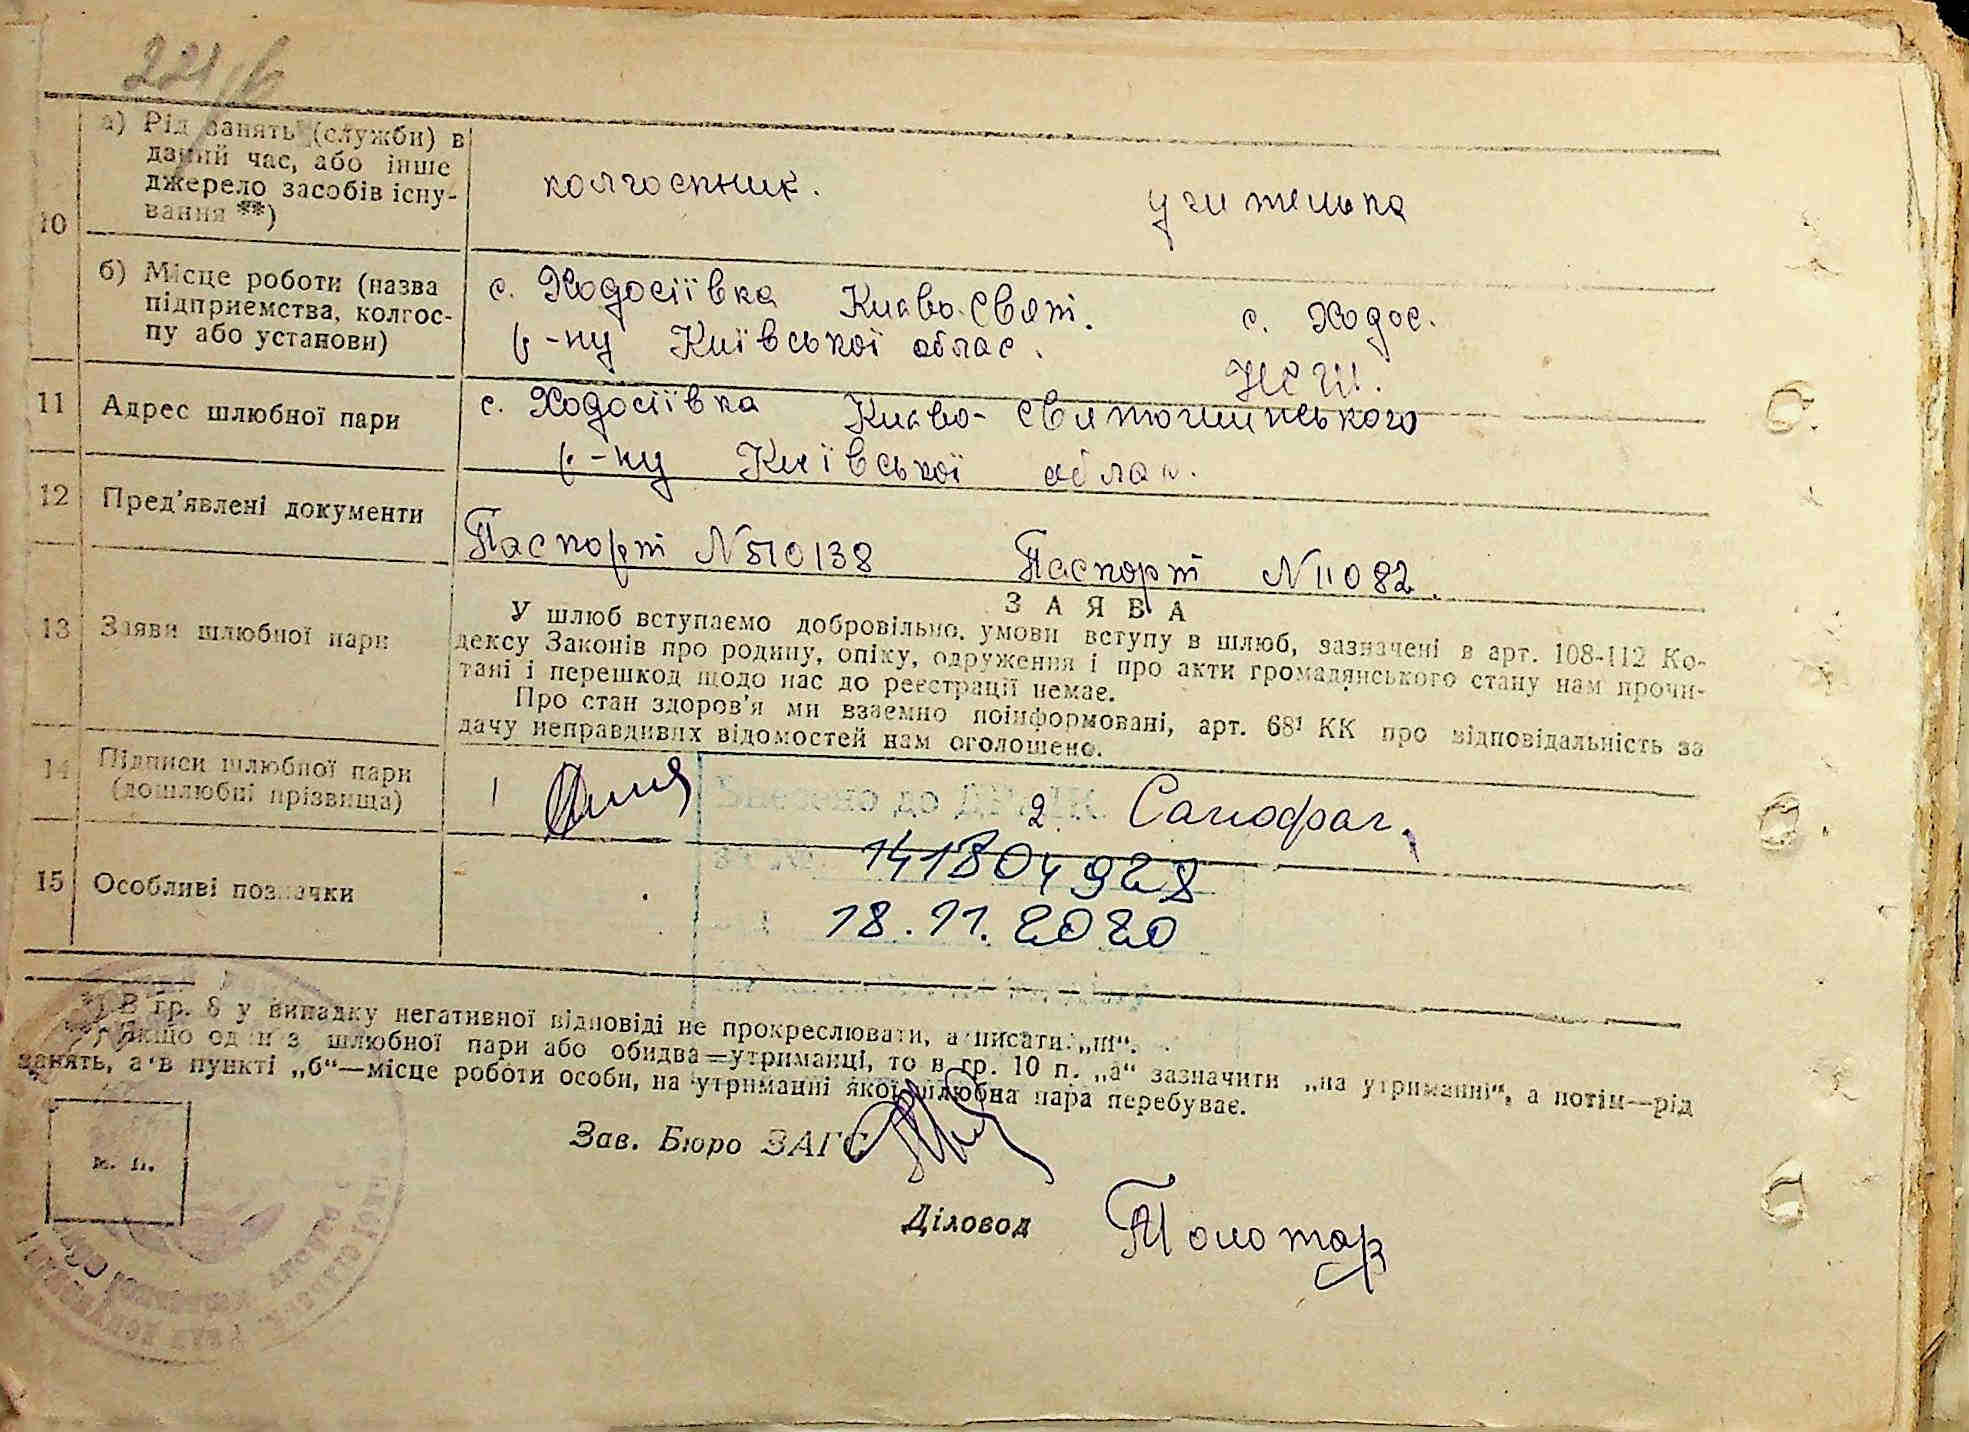 221
а) Рід занять (служби) в
даний час, або інше
джерело засобів існу-
вання **)
колгоспник.
учителька
10
б) Місце роботи (назва
підприємства, колгос-
пу або установи)
с. Ходосіївка Києво-Свят.
р-ну Київської облас.
с. Ходос.
НСШ.
11 Адрес шлюбної пари
с. Ходосіївка Києво-Святошинського
р-ну Київської облас.
12 Пред'явлені документи
Паспорт №510138
Паспорт №11082.
13 Заяви шлюбної пари
ЗАЯВА
У шлюб вступаємо добровільно, умови вступу в шлюб, зазначені в арт. 108-112 Ко-
дексу Законів про родину, опіку, одруження і про акти громадянського стану нам прочи-
тані і перешкод щодо нас до реєстрації немає.
Про стан здоров'я ми взаємно поінформовані, арт. 68¹ КК про відповідальність за
дачу неправдивих відомостей нам оголошено.
14 Підписи шлюбної пари
(дошлюбні прізвища)
1
2
Внесено до ДРАЦС
141804928
18.11.2020
15 Особливі позначки
*) В гр. 8 у випадку негативної відповіді не прокреслювати, а писати: „ні“.
**) Якщо один з шлюбної пари або обидва=утриманці, то в гр. 10 п. „а“ зазначити „на утриманні“, а потім—рід
занять, а в пункті „б“—місце роботи особи, на утриманні якої шлюбна пара перебуває.
м. п.
Зав. Бюро ЗАГС
Діловод